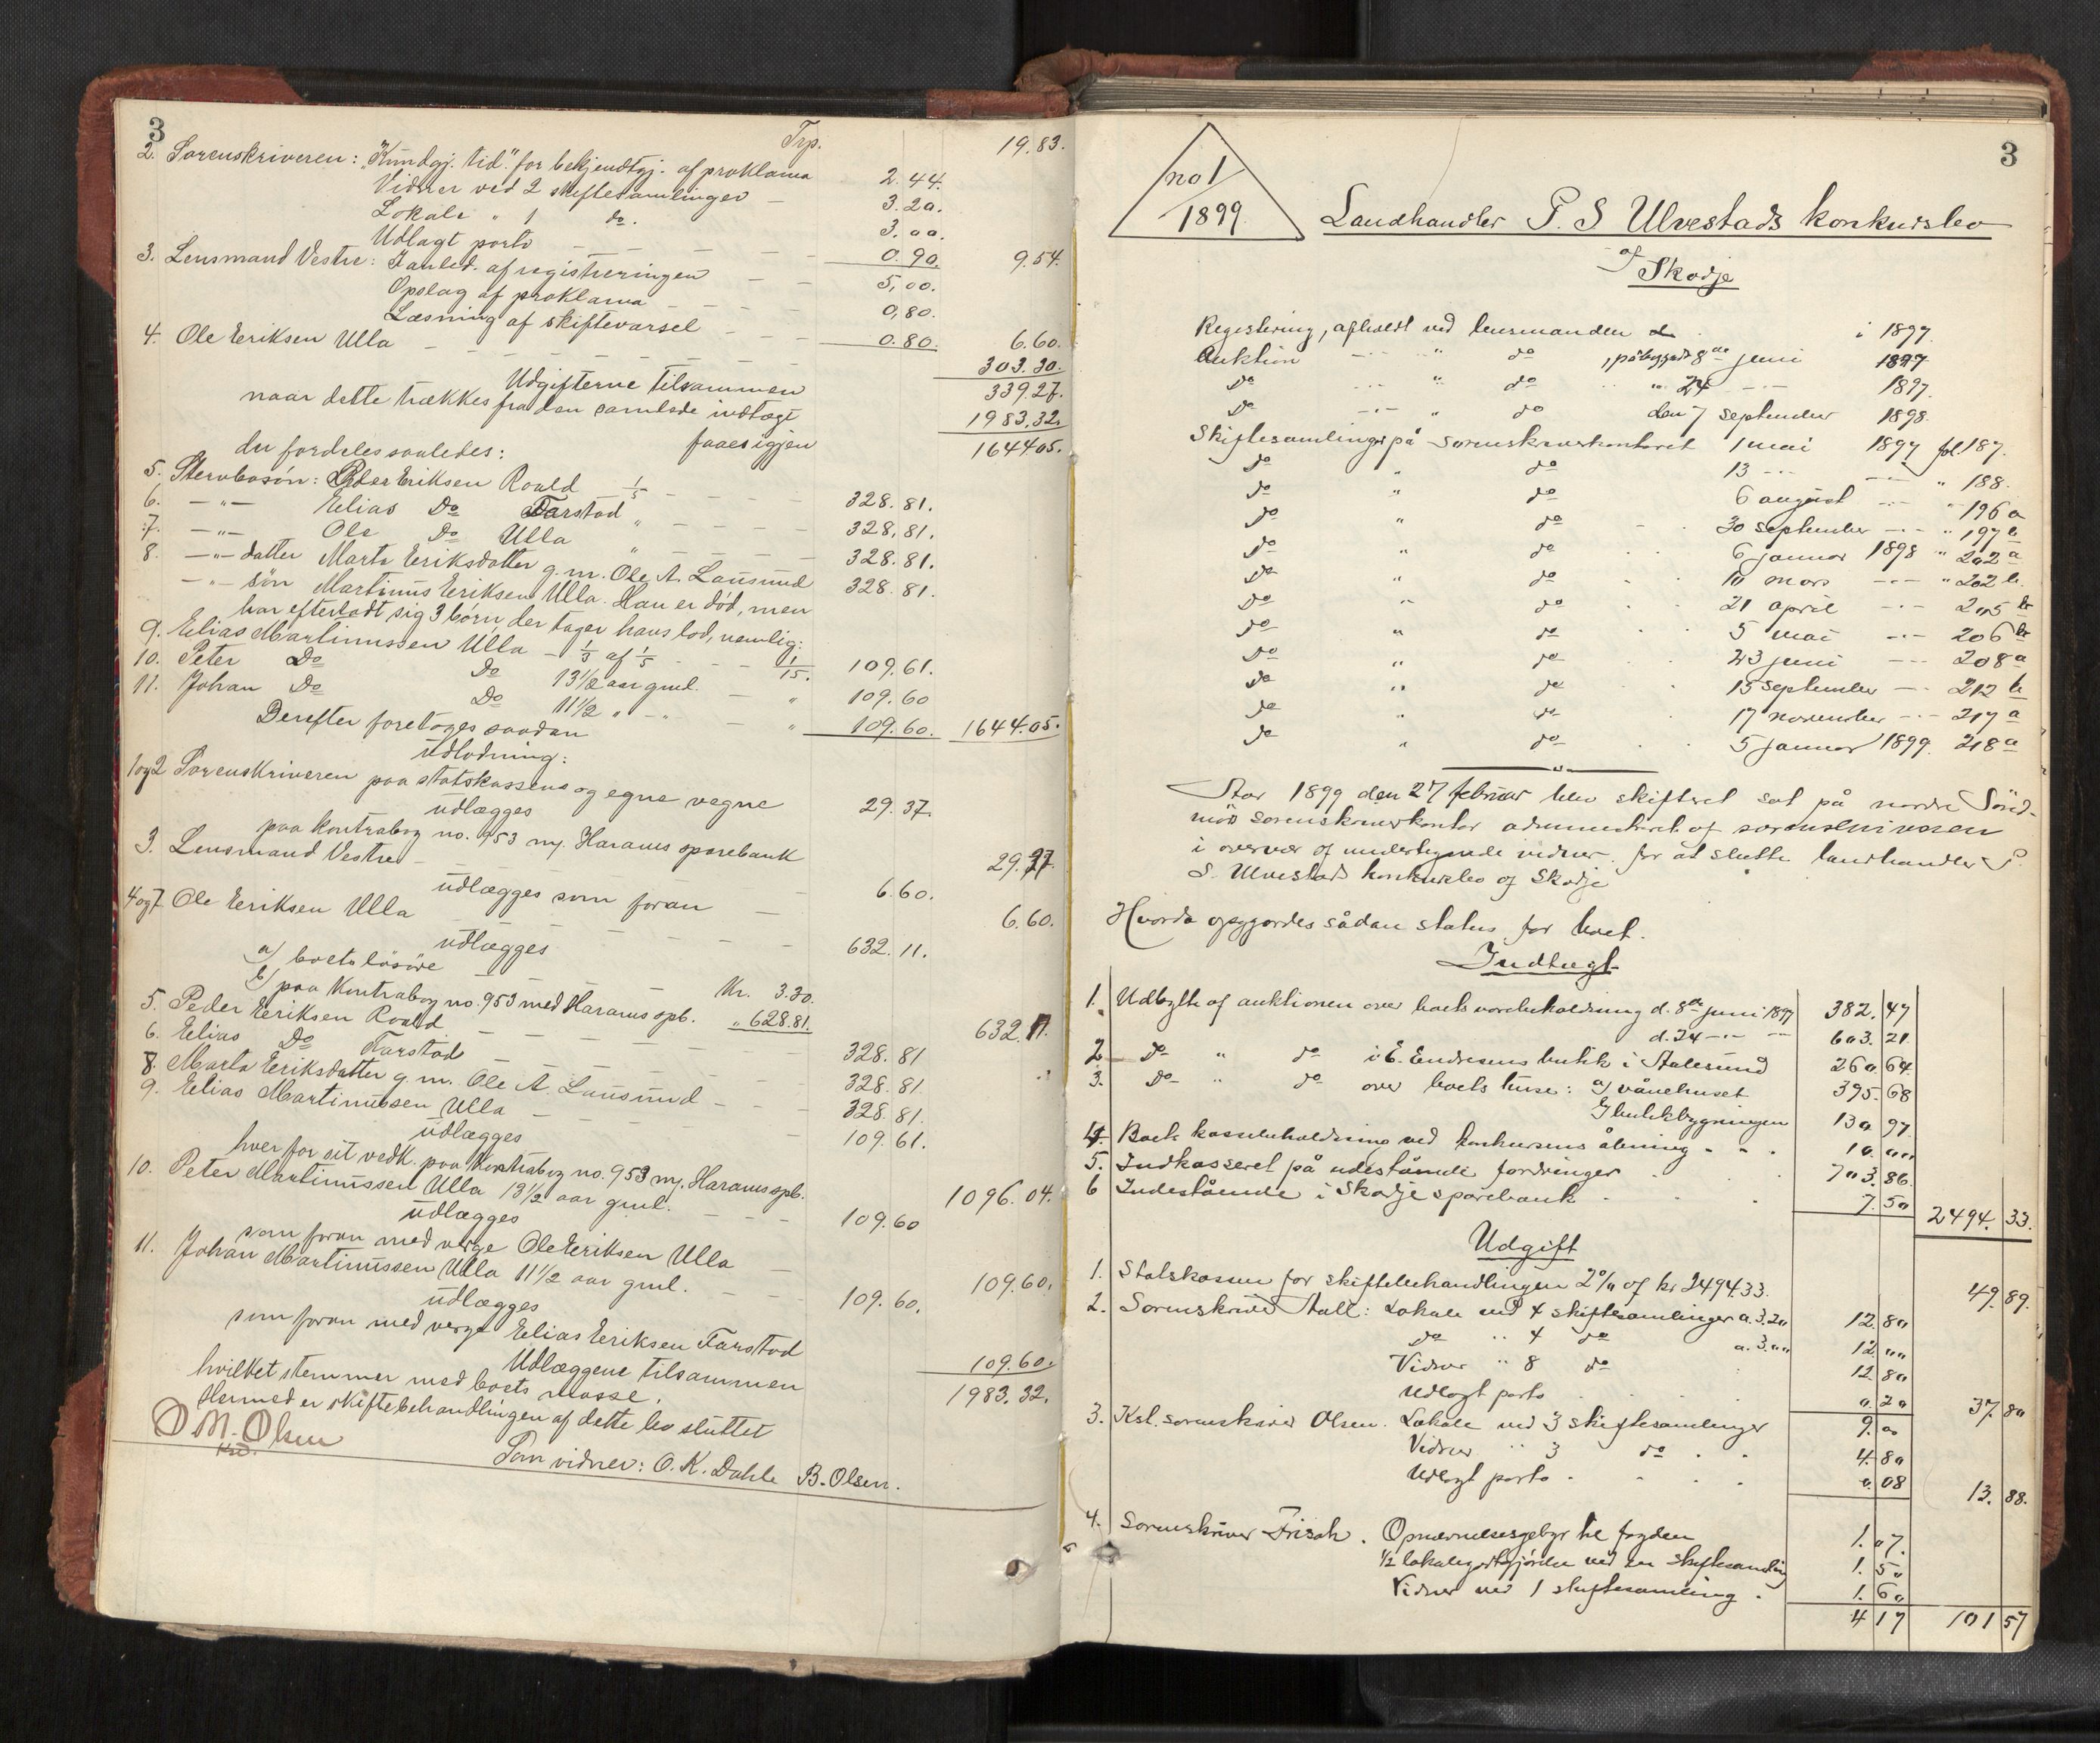 3
Trp. 19.83.
2. Sorenskriveren: "Kundgj. tid." for bekjendtgj. af proklama 2.44.
Vidner ved 2 skiftesamlinger — 3.20.
Lokale " 1 do. 3.00.
Udlagt porto — — — 0.90. 9.54.
3. Lensmand Vestre: I anled. af registreringen — 5,00.
Opslag af proklama — — 0,80.
Læsning af skiftevarsel — — 0.80. 6.60.
4. Ole Eriksen Ulla — — — — 303.30.
Udgifterne tilsammen 339.27.
naar dette trækkes fra den samlede indtægt 1983.32.
faaes igjen 1644.05.
der fordeles saaledes:
5. Stervbosøn: Peder Eriksen Roald 1/5 — — 328.81.
6. —"— Elias Do Farstad " — — 328.81.
7. —"— Ole Do Ulla " — — 328.81.
8. —"— datter Marte Eriksdatter g.m. Ole A. Lausund 328.81.
—"— søn Martinus Eriksen Ulla. Han er død, men
har efterladt sig 3 børn, der tager hans lod, nemlig:
9. Elias Martinussen Ulla — 1/3 af 1/5 — 1/15. 109.61.
10. Peter Do Do 13½ aar gml. — " 109.60
11. Johan Do Do 11½ " — " — " 109.60. 1644.05.
Derefter foretoges saadan
udlodning:
1 og 2 Sorenskriveren paa statskassens og egne vegne 29.37.
udlægges
paa kontrabog no. 953 m. Harams sparebank 29.37.
3. Lensmand Vestre — — 6.60.
udlægges som foran — 6.60.
4 og 7 Ole Eriksen Ulla — — — 632.11.
udlægges
a) boets løsøre — — Kr. 3.30.
b) paa Kontrabog no. 953 med Harams spb. " 628.81. 632.11.
5. Peder Eriksen Roald — — — 328.81
6. Elias Do Farstad — — — 328.81
8. Marta Eriksdatter g.m. Ole A. Lausund — — 328.81.
9. Elias Martinussen Ulla — — — 109.61.
udlægges
hver for sit vedk. paa Kontrabog no. 953 m. Harams spb. 1096.04.
10. Peter Martinussen Ulla 13½ aar gml. — — 109.60
udlægges
som foran med verge Ole Eriksen Ulla — 109.60.
11. Johan Martinussen Ulla 11½ aar gml. — — 109.60.
udlægges
som foran med verge Elias Eriksen Farstad 109.60.
Udlæggene tilsammen 1983.32.
hvilket stemmer med boets masse.
Hermed er skiftebehandlingen af dette bo sluttet
O M. Olsen
kst.
Som vidner: O. K. Dahle B. Olsen.
3
no 1
1899
Landhandler P. S Ulvestads konkursbo
af Skodje
Registering, afholdt ved lensmanden i 1897.
Auktion — " do , påbegyndt 8de juni 1897.
do — " do " 24 — 1897.
do — " do den 7 september 1898.
Skiftesamlinger på sorenskriverkontoret 1 mai 1897 fol 187.
do " do 13 — — " 188.
do " do 6 august — " 196 a
do " do 30 september — " 197 b
do " do 6 januar 1898 " 202 a
do " do 10 mars — " 202 b.
do " do 21 april — 205 b
do " do 5 mai — 206 b
do " do 23 juni — 208 a
do " do 15 september — 212 b
do " do 17 november — 217 a
do " do 5 januar 1899. 218 a
Aar 1899 den 27 februar blev skifteret sat på nordre Sönd-
mörs sorenskriverkontor administreret af sorenskriveren
i overvær af undertegnede vidner. for at slutte landhandler P.
S. Ulvestads konkursbo af Skodje
Hvorda opgjordes sådan status for boet.
Indtægt
1. Udbytte af auktionen over boets varebeholdning d. 8de juni 1897 382.47
d. 24 — — 603.21
2. do " do i E. Endresens butik i Aalesund 260.64
3. do " do over boets huse: a) vånehuset 395.68
b) butikbygningen 130.97
4. Boets kassebeholdning ved konkursens åbning 10.00
5. Indkasseret på udestående fordringer 703.86.
6 Indestående i Skodje sparebank 7.50 2494.33.
Udgift
1. Statskassen for skiftebehandlingen 2% af kr 2494.33. 49.89.
2. Sorenskriver Aall: Lokale ved 4 skiftesamlinger a. 3.20 12.80
do " 4 do a. 3.00 12.00
Vidner " 8 do 12.80
Udlagt porto 0.20 37.80
3. Kst. sorenskriver Olsen. Lokale ved 3 skiftesamlinger 9.00
Vidner " 3 do 4.80
Udlagt porto 0.08 13.88.
4. Sorenskriver Frisak. Opnævnelsesgebyr til fogden 1.07.
½ lokalegodtgjörelse ved en skiftesamling 1.50
Vidner ved 1 skiftesamling 1.60
4 17 101 57